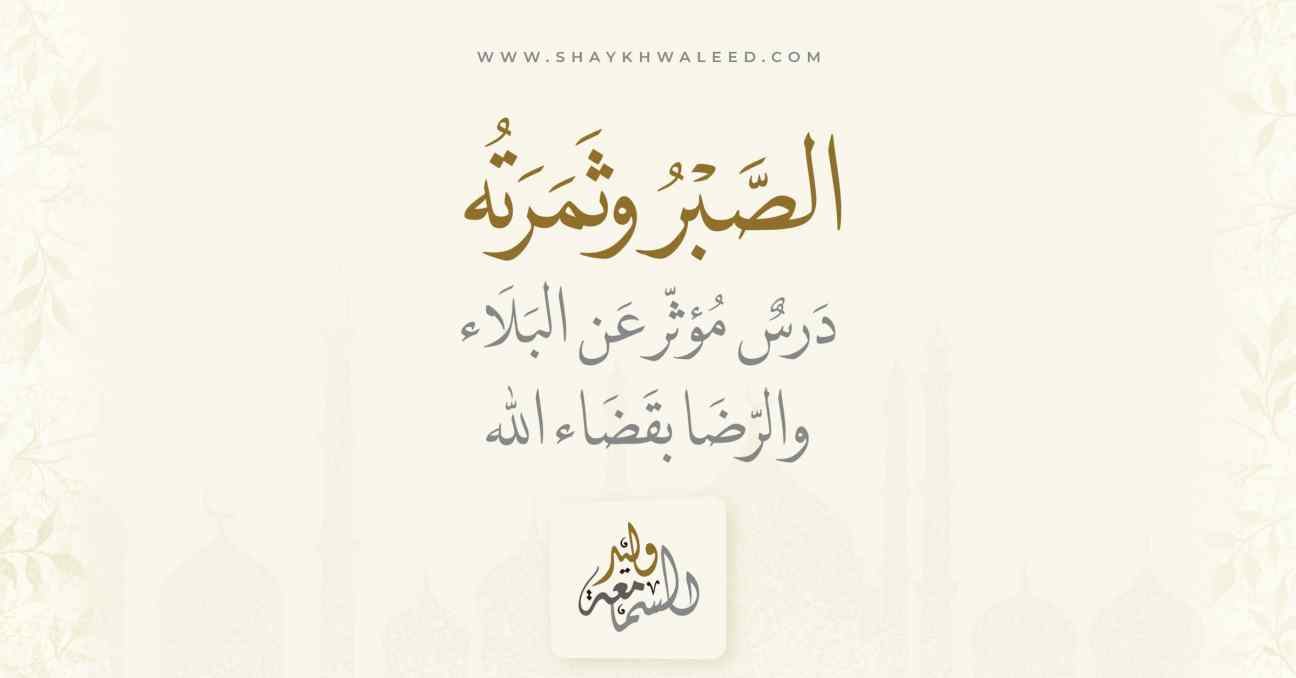 WWW.SHAYKHWALEED.COM
الصَّبْرُ وثَمَرَتُه
دَرسٌ مُؤثّر عَن البَلَاء
والرّضَا بقَضَاء الله
وليد
السمامعة